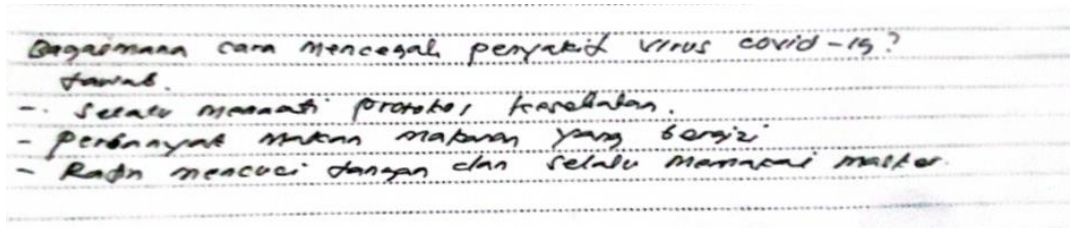 Bagaimana cara mencegah penyakit virus covid-19?
Jawab.
- Selalu menaati protokol kesehatan.
- Perbanyak makan makanan yang bergizi
- Rajin mencuci tangan dan selalu memakai masker.